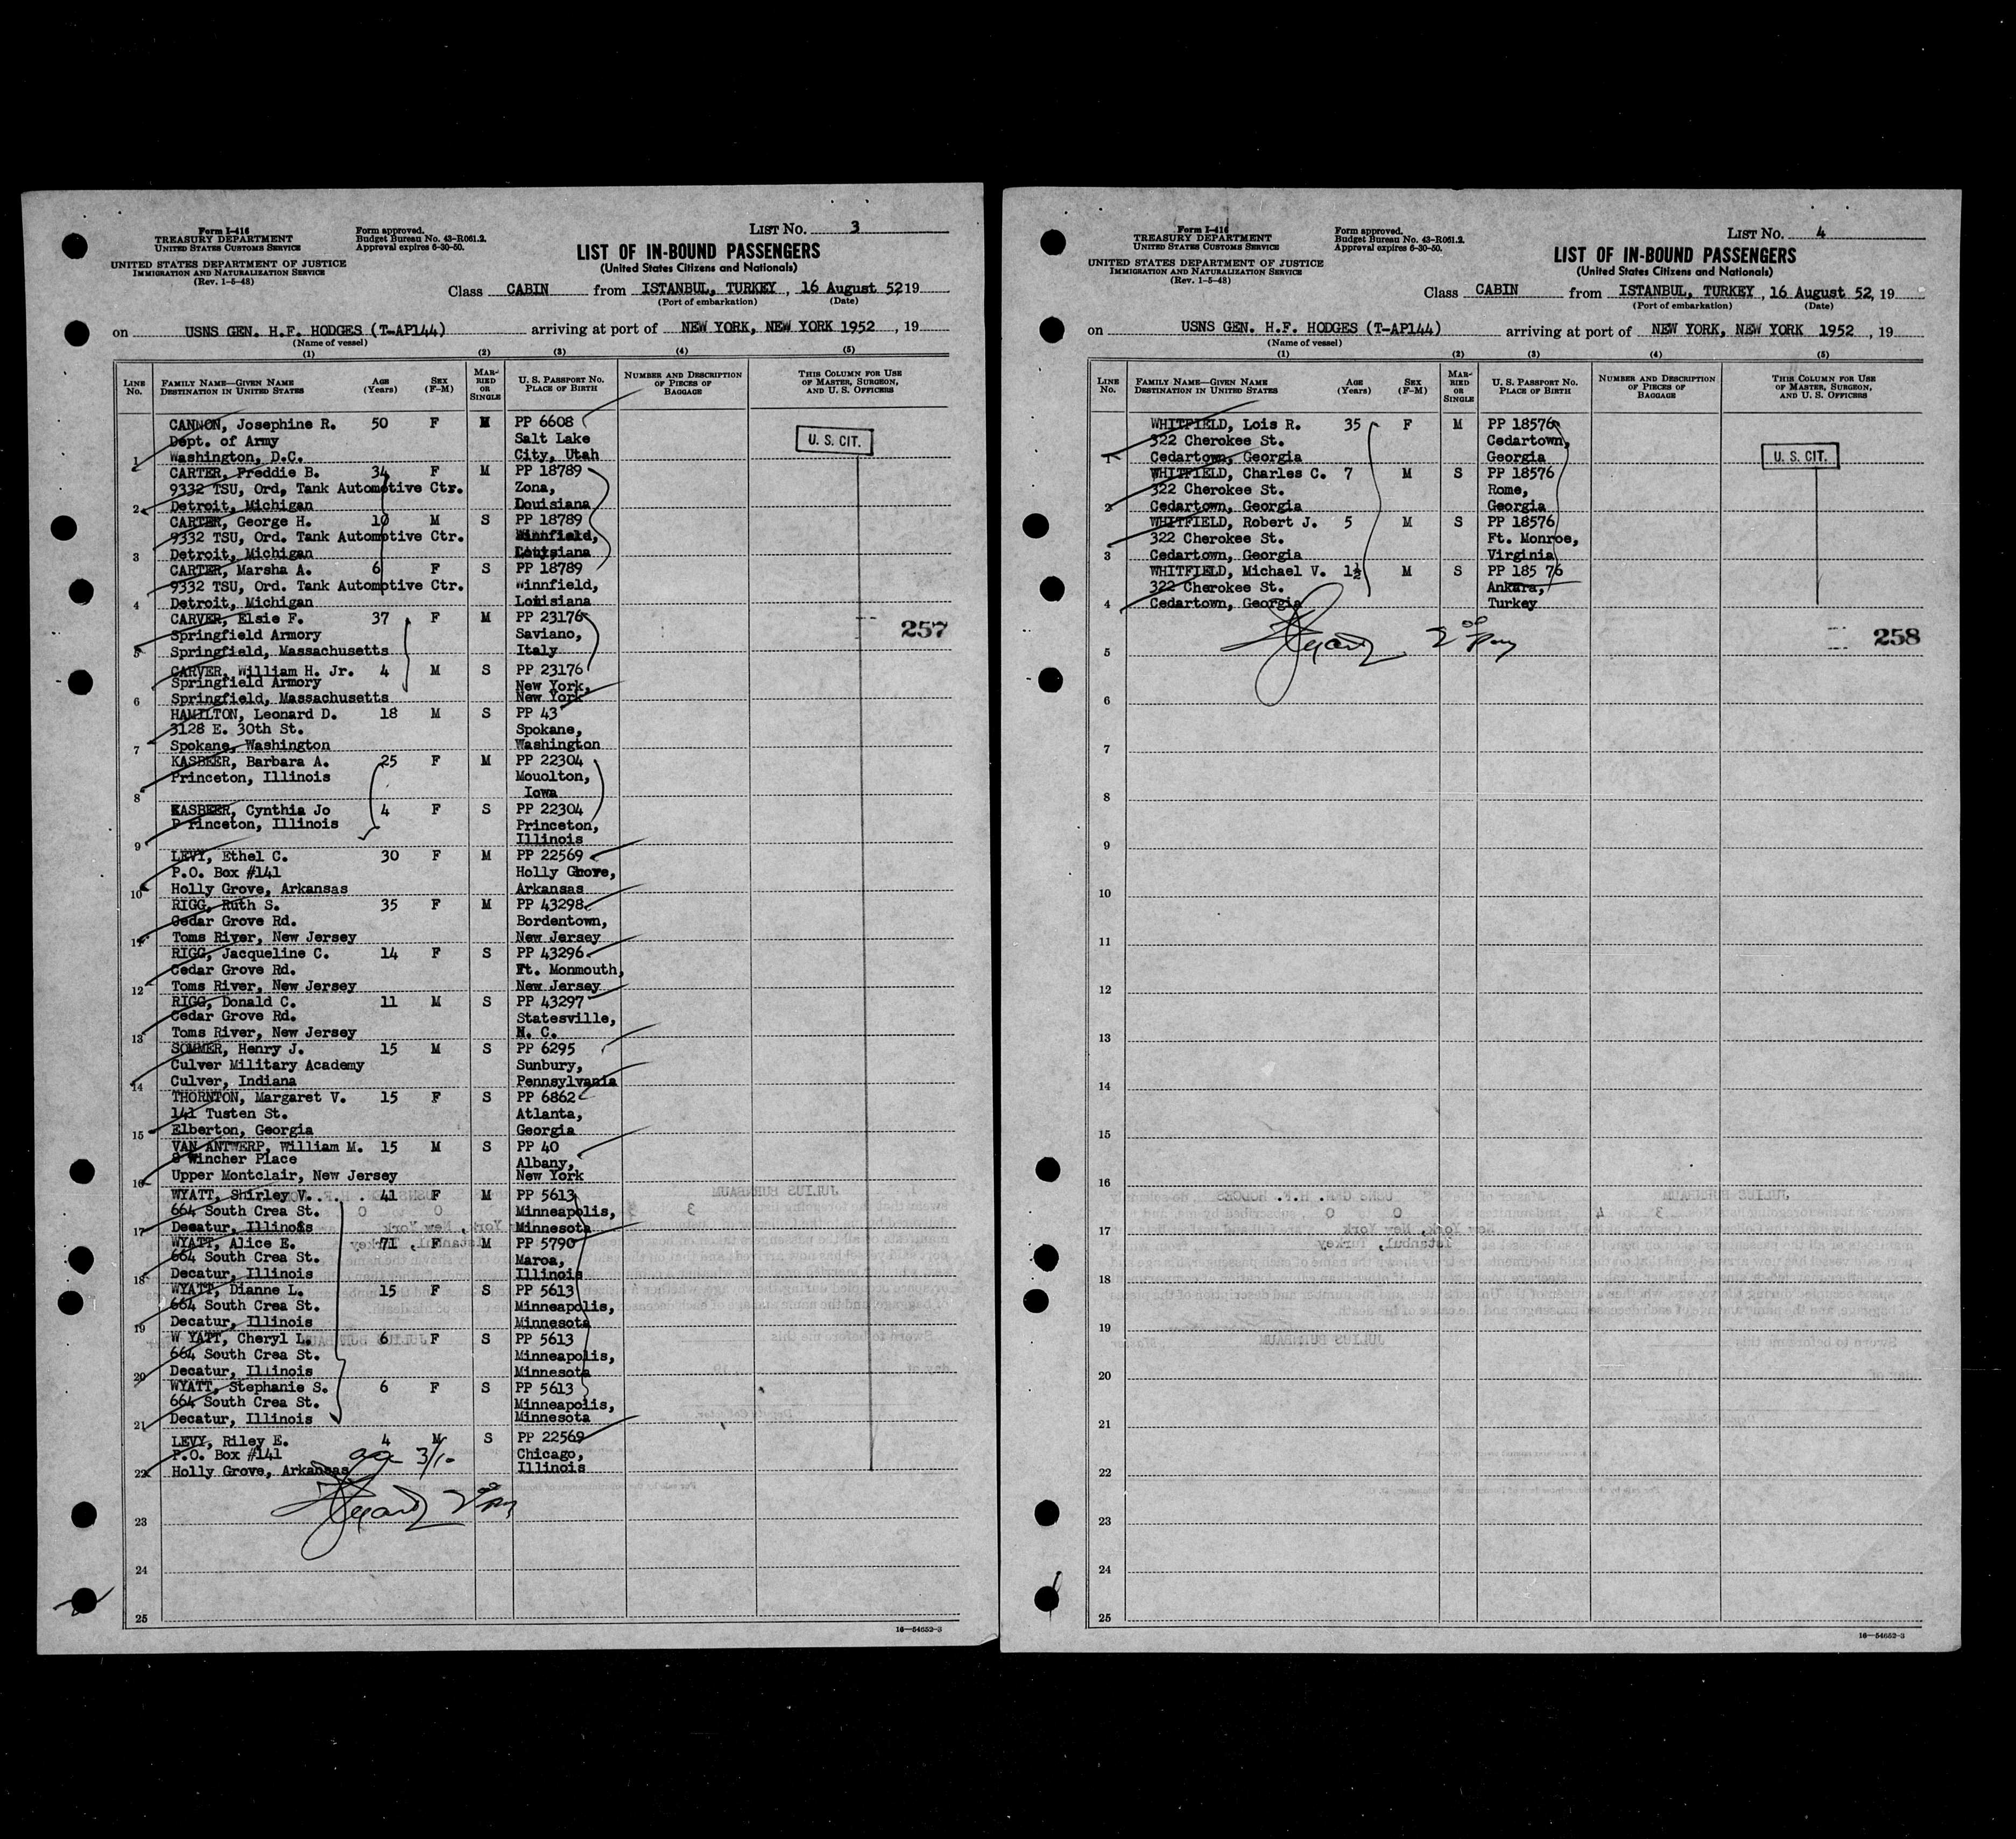 Form I-416
TREASURY DEPARTMENT
UNITED STATES CUSTOMS SERVICE
UNITED STATES DEPARTMENT OF JUSTICE
IMMIGRATION AND NATURALIZATION SERVICE
(Rev. 1-5-48)
Form approved.
Budget Bureau No. 43-R061.2.
Approval expires 6-30-50.
LIST NO. 3
LIST OF IN-BOUND PASSENGERS
(United States Citizens and Nationals)
Class CABIN from ISTANBUL, TURKEY, 16 August 52 19
(Port of embarkation) (Date)
on USNS GEN. H.F. HODGES (T-AP144) arriving at port of NEW YORK, NEW YORK 1952, 19
(Name of vessel)
(1) (2) (3) (4) (5)
LINE NO. FAMILY NAME—GIVEN NAME DESTINATION IN UNITED STATES AGE (Years) SEX (F-M) MARRIED OR SINGLE U. S. PASSPORT NO. PLACE OF BIRTH NUMBER AND DESCRIPTION OF PIECES OF BAGGAGE THIS COLUMN FOR USE OF MASTER, SURGEON, AND U. S. OFFICERS
CANNON, Josephine R. 50 F M PP 6608
Dept. of Army Salt Lake U. S. CIT.
1 Washington, D.C. City, Utah
CARTER, Freddie B. 34 F M PP 18789
9332 TSU, Ord, Tank Automotive Ctr. Zona,
2 Detroit, Michigan Louisiana
CARTER, George H. 10 M S PP 18789
9332 TSU, Ord. Tank Automotive Ctr. Winnfield,
3 Detroit, Michigan Louisiana
CARTER, Marsha A. 6 F S PP 18789
9332 TSU, Ord. Tank Automotive Ctr. Winnfield,
4 Detroit, Michigan Louisiana
CARVER, Elsie F. 37 F M PP 23176
Springfield Armory Saviano, 257
5 Springfield, Massachusetts Italy
CARVER, William H. Jr. 4 M S PP 23176
Springfield Armory New York,
6 Springfield, Massachusetts New York
HAMILTON, Leonard D. 18 M S PP 43
3128 E. 30th St. Spokane,
7 Spokane, Washington Washington
KASBEER, Barbara A. 25 F M PP 22304
Princeton, Illinois Mouolton,
8 Iowa
KASBEER, Cynthia Jo 4 F S PP 22304
P rinceton, Illinois Princeton,
9 Illinois
LEVY, Ethel C. 30 F M PP 22569
P.O. Box #141 Holly Grove,
10 Holly Grove, Arkansas Arkansas
RIGG, Ruth S. 35 F M PP 43298
Cedar Grove Rd. Bordentown,
11 Toms River, New Jersey New Jersey
RIGG, Jacqueline C. 14 F S PP 43296
Cedar Grove Rd. Ft. Monmouth,
12 Toms River, New Jersey New Jersey
RIGG, Donald C. 11 M S PP 43297
Cedar Grove Rd. Statesville,
13 Toms River, New Jersey N. C.
SOMMER, Henry J. 15 M S PP 6295
Culver Military Academy Sunbury,
14 Culver, Indiana Pennsylvania
THORNTON, Margaret V. 15 F S PP 6862
141 Tusten St. Atlanta,
15 Elberton, Georgia Georgia
VAN ANTWERP, William M. 15 M S PP 40
8 Wincher Place Albany,
16 Upper Montclair, New Jersey New York
WYATT, Shirley V. 41 F M PP 5613
664 South Crea St. Minneapolis,
17 Decatur, Illinois Minnesota
WYATT, Alice E. 71 F M PP 5790
664 South Crea St. Maroa,
18 Decatur, Illinois Illinois
WYATT, Dianne L. 15 F S PP 5613
664 South Crea St. Minneapolis,
19 Decatur, Illinois Minnesota
W YATT, Cheryl L. 6 F S PP 5613
664 South Crea St. Minneapolis,
20 Decatur, Illinois Minnesota
WYATT, Stephanie S. 6 F S PP 5613
664 South Crea St. Minneapolis,
21 Decatur, Illinois Minnesota
LEVY, Riley E. 4 M S PP 22569
P.O. Box #141 Chicago,
22 Holly Grove, Arkansas Illinois
23
24
25
16—54652-3
Form I-416
TREASURY DEPARTMENT
UNITED STATES CUSTOMS SERVICE
UNITED STATES DEPARTMENT OF JUSTICE
IMMIGRATION AND NATURALIZATION SERVICE
(Rev. 1-5-48)
Form approved.
Budget Bureau No. 43-R061.2.
Approval expires 6-30-50.
LIST NO. 4
LIST OF IN-BOUND PASSENGERS
(United States Citizens and Nationals)
Class CABIN from ISTANBUL, TURKEY, 16 August 52, 19
(Port of embarkation) (Date)
on USNS GEN. H.F. HODGES (T-AP144) arriving at port of NEW YORK, NEW YORK 1952, 19
(Name of vessel)
(1) (2) (3) (4) (5)
LINE NO. FAMILY NAME—GIVEN NAME DESTINATION IN UNITED STATES AGE (Years) SEX (F-M) MARRIED OR SINGLE U. S. PASSPORT NO. PLACE OF BIRTH NUMBER AND DESCRIPTION OF PIECES OF BAGGAGE THIS COLUMN FOR USE OF MASTER, SURGEON, AND U. S. OFFICERS
WHITFIELD, Lois R. 35 F M PP 18576
322 Cherokee St. Cedartown,
1 Cedartown, Georgia Georgia U. S. CIT.
WHITFIELD, Charles C. 7 M S PP 18576
322 Cherokee St. Rome,
2 Cedartown, Georgia Georgia
WHITFIELD, Robert J. 5 M S PP 18576
322 Cherokee St. Ft. Monroe,
3 Cedartown, Georgia Virginia
WHITFIELD, Michael V. 1½ M S PP 185 76
322 Cherokee St. Ankara,
4 Cedartown, Georgia Turkey
258
5
6
7
8
9
10
11
12
13
14
15
16
17
18
19
20
21
22
23
24
25
16—54652-3